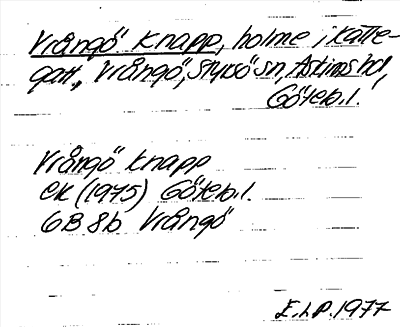 Vrångö Knapp, holme i Katte-
gatt, Vrångö, Styrsö sn, Askims hd,
Göteb.l.
Vrångö Knapp
ek (1975) Göteb.l.
6B 8b Vrångö
E.L.P. 1977